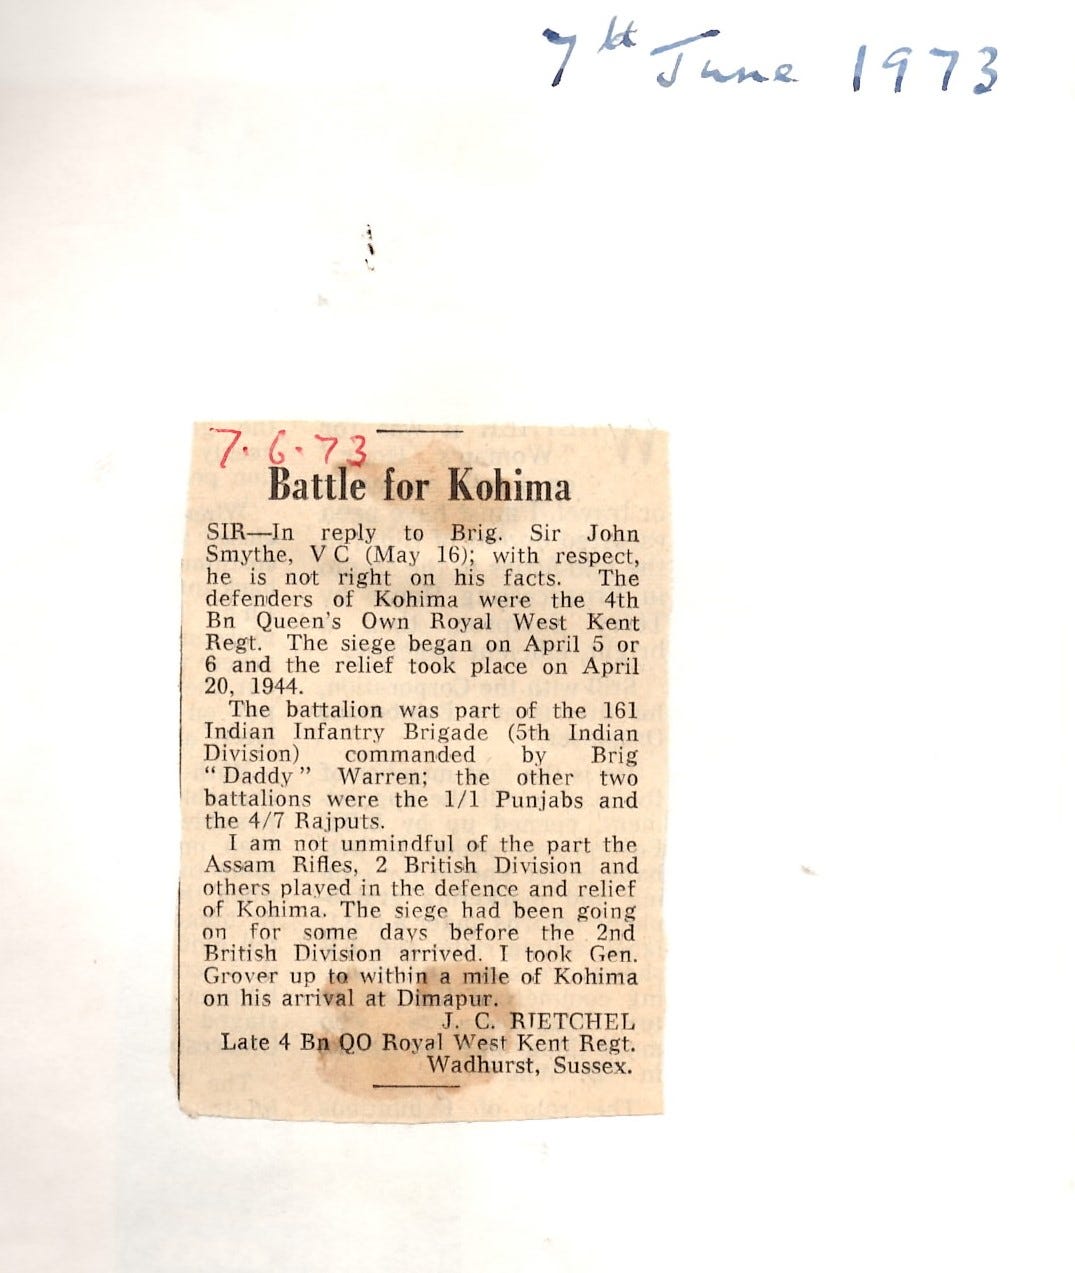 7th June 1973
7.6.73
Battle for Kohima
SIR—In reply to Brig. Sir John
Smythe, V C (May 16); with respect,
he is not right on his facts. The
defenders of Kohima were the 4th
Bn Queen's Own Royal West Kent
Regt. The siege began on April 5 or
6 and the relief took place on April
20, 1944.
The battalion was part of the 161
Indian Infantry Brigade (5th Indian
Division) commanded by Brig
"Daddy" Warren; the other two
battalions were the 1/1 Punjabs and
the 4/7 Rajputs.
I am not unmindful of the part the
Assam Rifles, 2 British Division and
others played in the defence and relief
of Kohima. The siege had been going
on for some days before the 2nd
British Division arrived. I took Gen.
Grover up to within a mile of Kohima
on his arrival at Dimapur.
J. C. RIETCHEL
Late 4 Bn QO Royal West Kent Regt.
Wadhurst, Sussex.